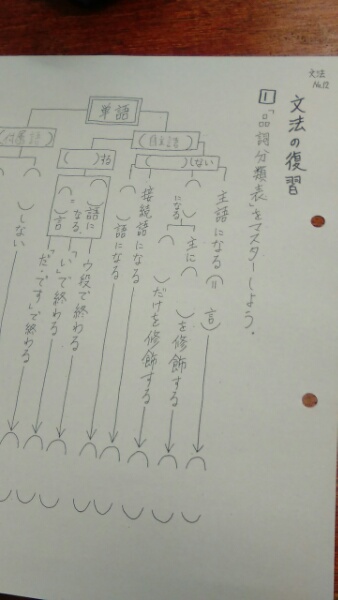 文法
No.12
文法の復習
1 「品詞分類表」をマスターしよう。
単語
(自立語)
(付属語)
(　　)しない
(　　)する
主語になる(＝　言)
(　　)になる
主に(　　)を修飾する
(　　)だけを修飾する
接続語になる
(　　)語になる
(　　)語になる
＝(　　)言
ウ段で終わる
「い」で終わる
「だ・です」で終わる
(　　)しない